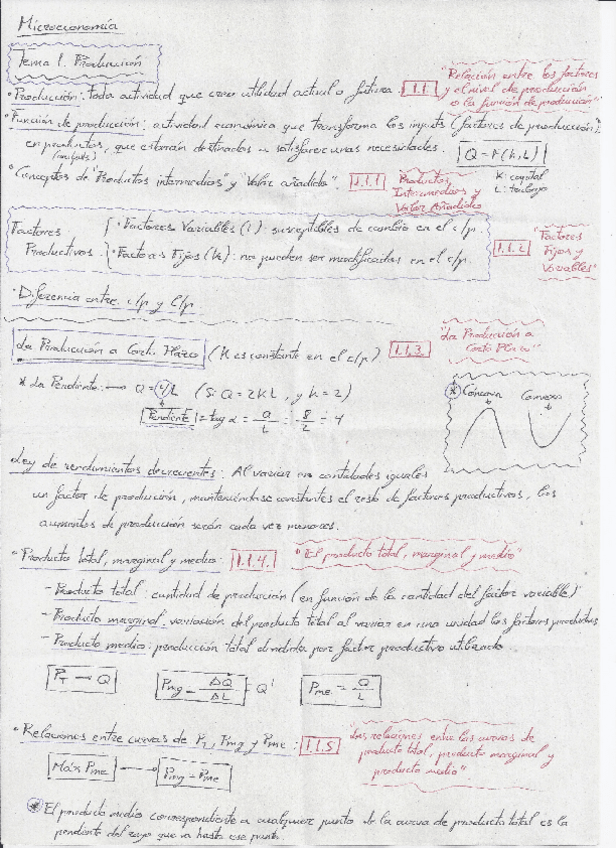 Microeconomía
Tema 1. Producción
• Producción: toda actividad que crea utilidad actual o futura. 1.1.
"Relación entre los factores
y el nivel de producción
o la función de producción"
• Función de producción: actividad económica que transforma los inputs (factores de producción)
en productos, que estarán destinados a satisfacer unas necesidades. Q = F(K,L)
(outputs)
K: capital
L: trabajo
• Conceptos de "Productos intermedios" y "Valor añadido". 1.1.1
Productos
Intermedios y
Valor Añadido
Factores
Productivos
• Factores Variables (L): susceptibles de cambio en el c/p
• Factores Fijos (K): no pueden ser modificados en el c/p.
1.1.2
"Factores
Fijos y
Variables"
• Diferencia entre c/p y l/p
La Producción a Corto Plazo (K es constante en el c/p) 1.1.3
"La Producción a
Corto Plazo"
* La Pendiente: → Q = 4L (Si Q = 2KL, y K = 2)
Pendiente = tag α = Q/L = 8/2 = 4
* Cóncava Convexa
Ley de rendimientos decrecientes: Al variar en cantidades iguales
un factor de producción, manteniéndose constantes el resto de factores productivos, los
aumentos de producción serán cada vez menores.
• Producto total, marginal y medio: 1.1.4. "El producto total, marginal y medio"
- Producto total: cantidad de producción (en función de la cantidad del factor variable)
- Producto marginal: variación del producto total al variar en una unidad los factores productivos
- Producto medio: producción total dividida por factor productivo utilizado
PT → Q
Pmg = ΔQ/ΔL = Q'
Pme = Q/L
• Relaciones entre curvas de PT, Pmg y Pme: 1.1.5
"Las relaciones entre las curvas de
producto total, producto marginal y
producto medio"
Máx Pme → Pmg = Pme
* El producto medio correspondiente a cualquier punto de la curva de producto total es la
pendiente del rayo que va hasta ese punto.